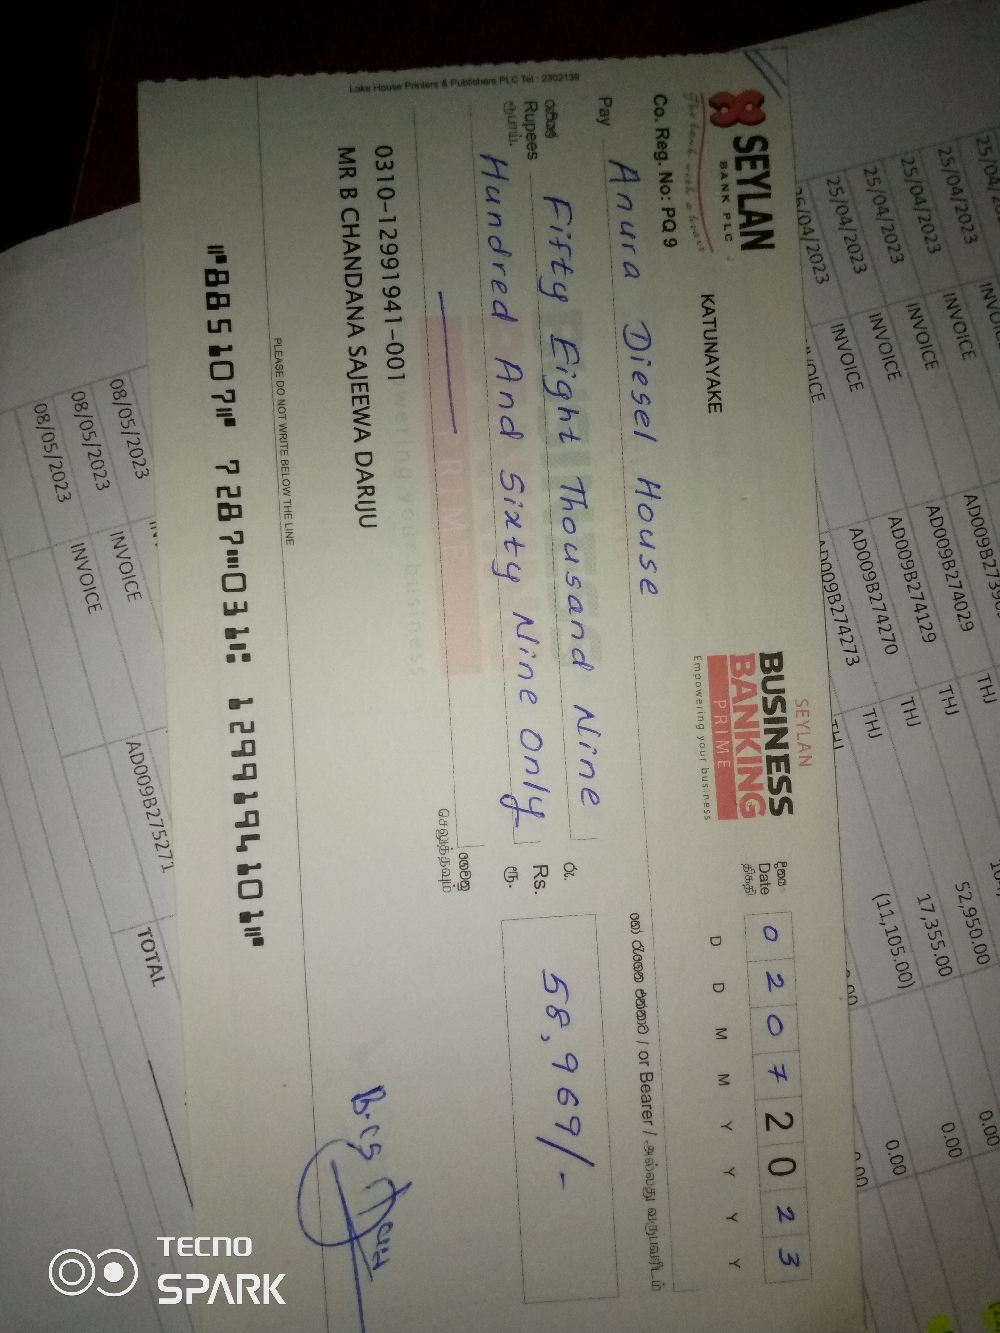 Lake House Printers & Publishers PLC Tel : 2302139
SEYLAN
BANK PLC
The bank with a heart
Co. Reg. No: PQ 9
KATUNAYAKE
SEYLAN
BUSINESS
BANKING
PRIME
Empowering your business
දිනය
Date
திகதி
0 2 0 7 2 0 2 3
D D M M Y Y Y Y
Pay Anura Diesel House
or Bearer / அல்லது
රුපියල්
Rupees Fifty Eight Thousand Nine
ரூபாய்
Hundred And Sixty Nine Only
රු.
Rs. 58,969/-
ரூ.
ගෙවනු
செலுத்தவும்
0310-12991941-001
MR B CHANDANA SAJEEWA DARIJU
PLEASE DO NOT WRITE BELOW THE LINE
⑈885107⑈ 7287⑉031⑆ 129919410 1⑈
25/04/2023
25/04/2023 INVOICE AD009B274029 THJ 52,950.00 0.00
25/04/2023 INVOICE AD009B274129 THJ 17,355.00 0.00
25/04/2023 INVOICE AD009B274270 THJ (11,105.00) 0.00
25/04/2023 INVOICE AD009B274273 THJ 0.00 0.00
08/05/2023 INVOICE
08/05/2023 INVOICE AD009B275271
08/05/2023
TOTAL
TECNO
SPARK